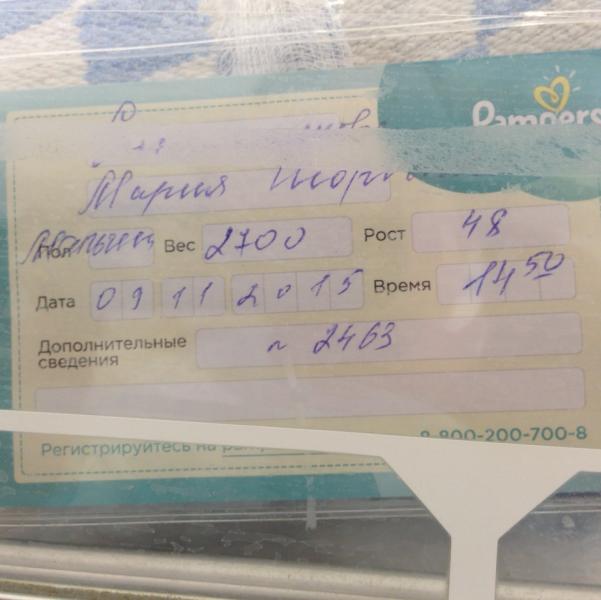 Pampers
Мария
Пол Мальчик Вес 2700 Рост 48
Дата 09 11 2015 Время 14 50
Дополнительные 2463
сведения
8-800-200-700-8
Регистрируйтесь на